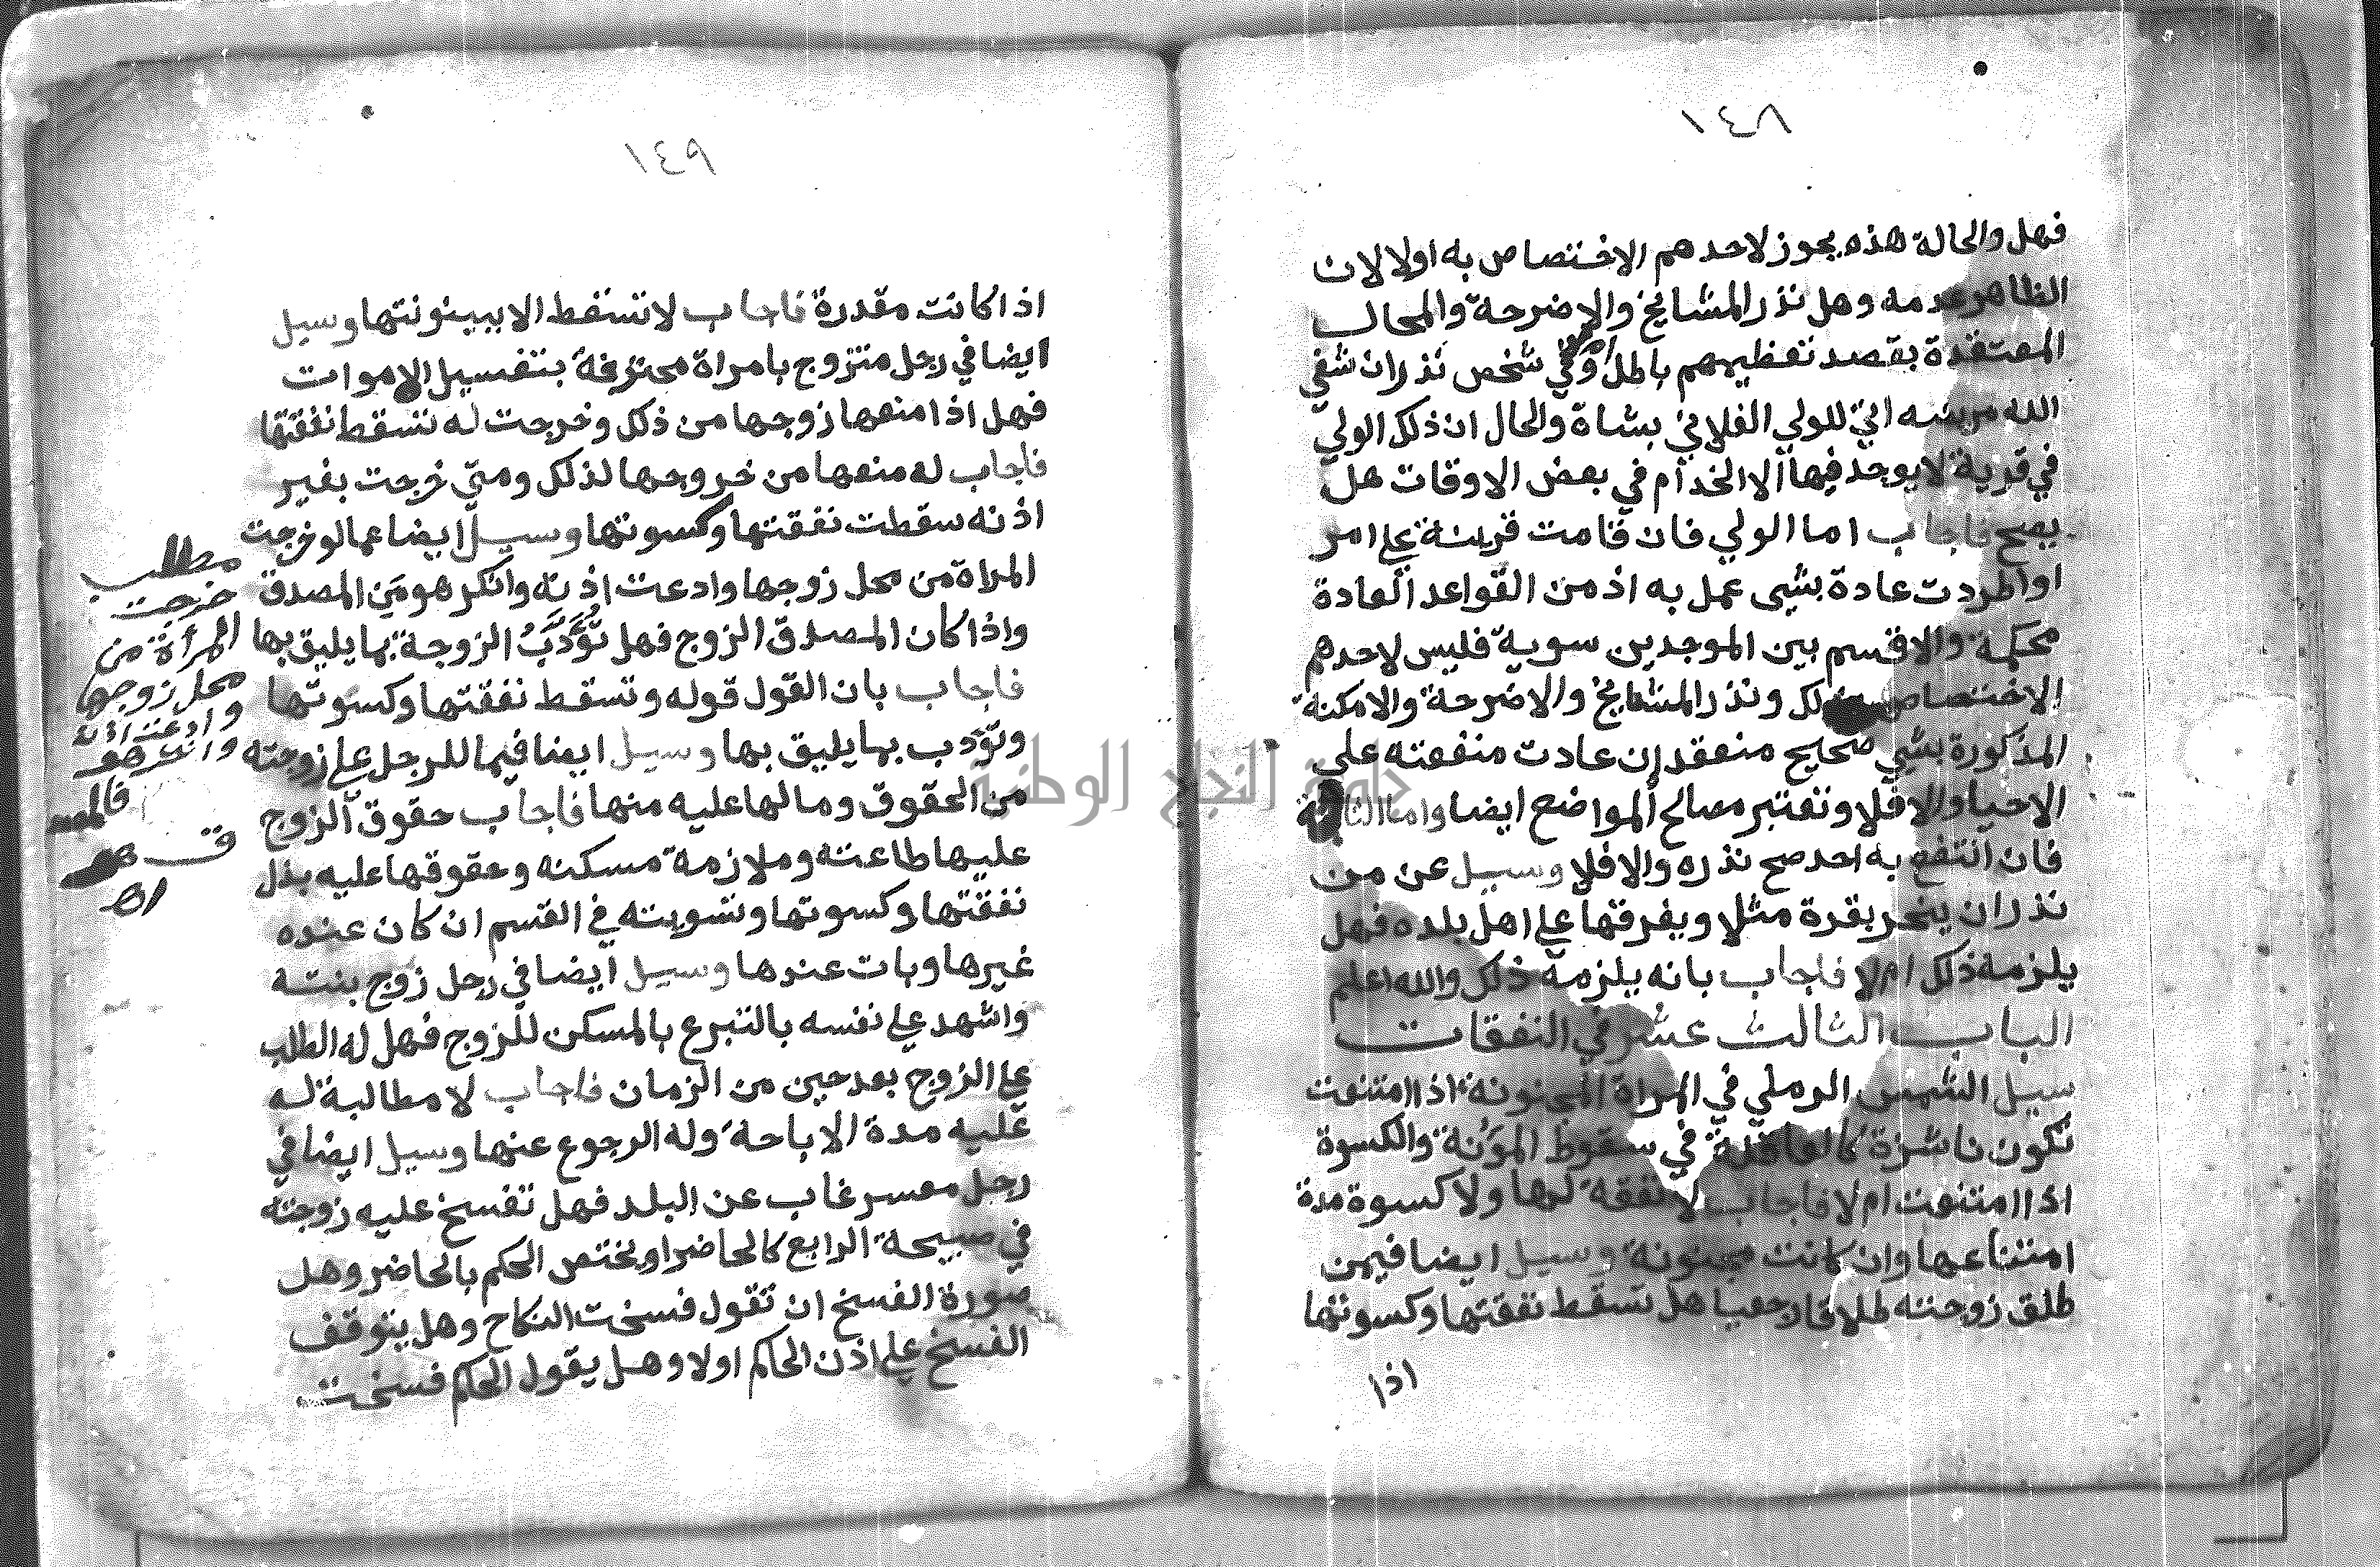 ١٤٨
فهل والحالة هذه يجوز لاحدهم الاختصاص به اولا لان
الظاهر عدمه وهل نذر المشايخ والاضرحة والمحال
المعتقدة بقصد تعظيمهم باطل وفي شخص نذر ان شفي
الله مريضه اتى للولي الفلاني بشاة والحال ان ذلك الولي
في قرية لا يوجد فيها الا الخدام في بعض الاوقات هل
يصح فاجاب اما الولي فان قامت قرينة على امر
او اطردت عادة بشيى عمل به اذ من القواعد العادة
محكمة والا قسم بين الموجدين سوية فليس لاحدهم
الاختصاص بذلك ونذر المشايخ والاضرحة والامكنة
المذكورة بشيى صحيح منعقد ان عادت منفعته على
الاحيا والا فلا وتعتبر مصالح المواضع ايضا واما
فان انتفع به احد صح نذره والا فلا وسيل عن من
نذر ان ينحر بقرة مثلا ويفرقها على اهل بلده فهل
يلزمه ذلك ام لا فاجاب بانه يلزمه ذلك والله اعلم
الباب الثالث عشر في النفقات
سيل الشمس الرملي في المراة المجنونة اذا امتنعت
تكون ناشزة كالعاقلة في سقوط المؤنة والكسوة
اذا امتنعت ام لا فاجاب لا نفقة لها ولا كسوة مدة
امتناعها وان كانت مجنونة وسيل ايضا فيمن
طلق زوجته طلاقا رجعيا هل تسقط نفقتها وكسوتها
اذا
١٤٩
اذا كانت مقدرة فاجاب لا تسقط الا ببينونتها وسيل
ايضا في رجل متزوج بامراة محترفة بتغسيل الاموات
فهل اذا منعها زوجها من ذلك وخرجت له تسقط نفقتها
فاجاب له منعها من خروجها لذلك ومتى خرجت بغير
اذنه سقطت نفقتها وكسوتها وسيل ايضا عما لو خرجت
المراة من محل زوجها وادعت اذنه وانكر هو من المصدق
واذا كان المصدق الزوج فهل تؤدب الزوجة بما يليق بها
فاجاب بان القول قوله وتسقط نفقتها وكسوتها
وتؤدب بما يليق بها وسيل ايضا فيما للرجل على زوجته
من الحقوق وما لها عليه منها فاجاب حقوق الزوج
عليها طاعته وملازمة مسكنه وحقوقها عليه بذل
نفقتها وكسوتها وتسويته في القسم ان كان عنده
غيرها وبات عندها وسيل ايضا في رجل زوج بنته
واشهد على نفسه بالتبرع بالمسكن للزوج فهل له الطلب
على الزوج بعد حين من الزمان فاجاب لا مطالبة له
عليه مدة الاباحة وله الرجوع عنها وسيل ايضا في
رجل معسر غاب عن البلد فهل تفسخ عليه زوجته
في صبيحة الرابع كالحاضر او يختص الحكم بالحاضر وهل
صورة الفسخ ان تقول فسخت النكاح وهل يتوقف
الفسخ على اذن الحاكم اولا وهل يقول الحاكم فسخت
مطلب
خرجت
المرأة من
محل زوجها
وادعت اذنه
اه
جامعة النجاح الوطنية